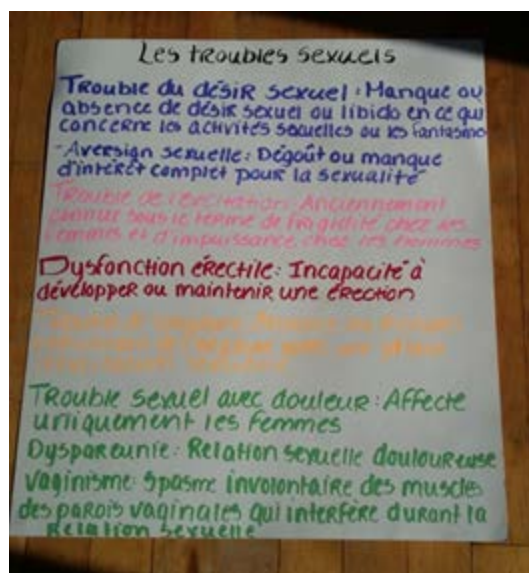 Les troubles sexuels
Trouble du désir sexuel : Manque ou
absence de désir sexuel ou libido en ce qui
concerne les activités sexuelles ou les fantasme
-Aversion sexuelle : Dégoût ou manque
d'intérêt complet pour la sexualité
Trouble de l'excitation: Anciennement
connue sous le terme de frigidité chez les
femmes et d'impuissance chez les hommes
Dysfonction érectile : Incapacité à
développer ou maintenir une érection
Trouble sexuel avec douleur : Affecte
uniquement les femmes
Dyspareunie : Relation sexuelle douloureuse
Vaginisme: Spasme involontaire des muscles
des parois vaginales qui interfère durant la
Relation sexuelle